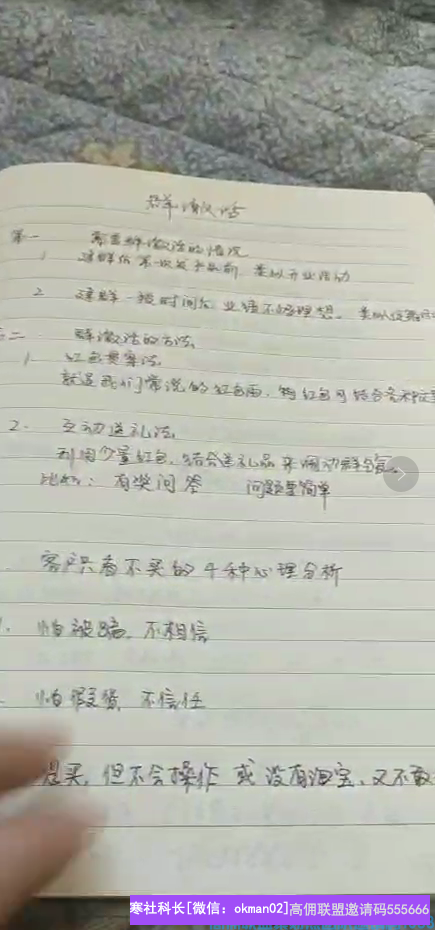 群激活
第一 需要群激活的情况
1 建群后第一次发产品前，类似开业活动
2 建群一段时间后，业绩不够理想。类似
二 群激活的方法
1. 红包
就是我们常说的红包雨，
2. 互动送礼法
利用少量红包，结合送礼品来调动群
比如：有奖问答 问题要简单
客户只看不买的4种心理分析
1. 怕被骗，不相信
怕假货，不信任
想买，但不会操作 或没有淘宝，又不敢
寒社科长[微信：okman02]高佣联盟邀请码555666